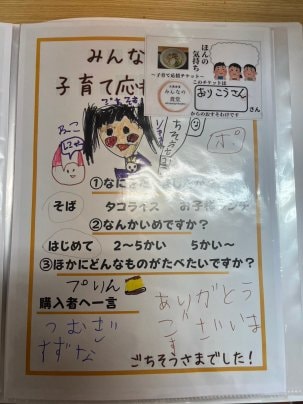 みんな
子育て応
ほんの
気持ち
～子育て応援チケット～
このチケットは
みんなの
食堂
ありこうさん
さん
からのおすそわけです
①なに
そば
タコライス
お子様
②なんかいめですか？
はじめて
2～5かい
5かい～
③ほかにどんなものがたべたいですか？
プリん
購入者へ一言
ありがとう
ございま
す
つむぎ
すずな
ごちそうさまでした！